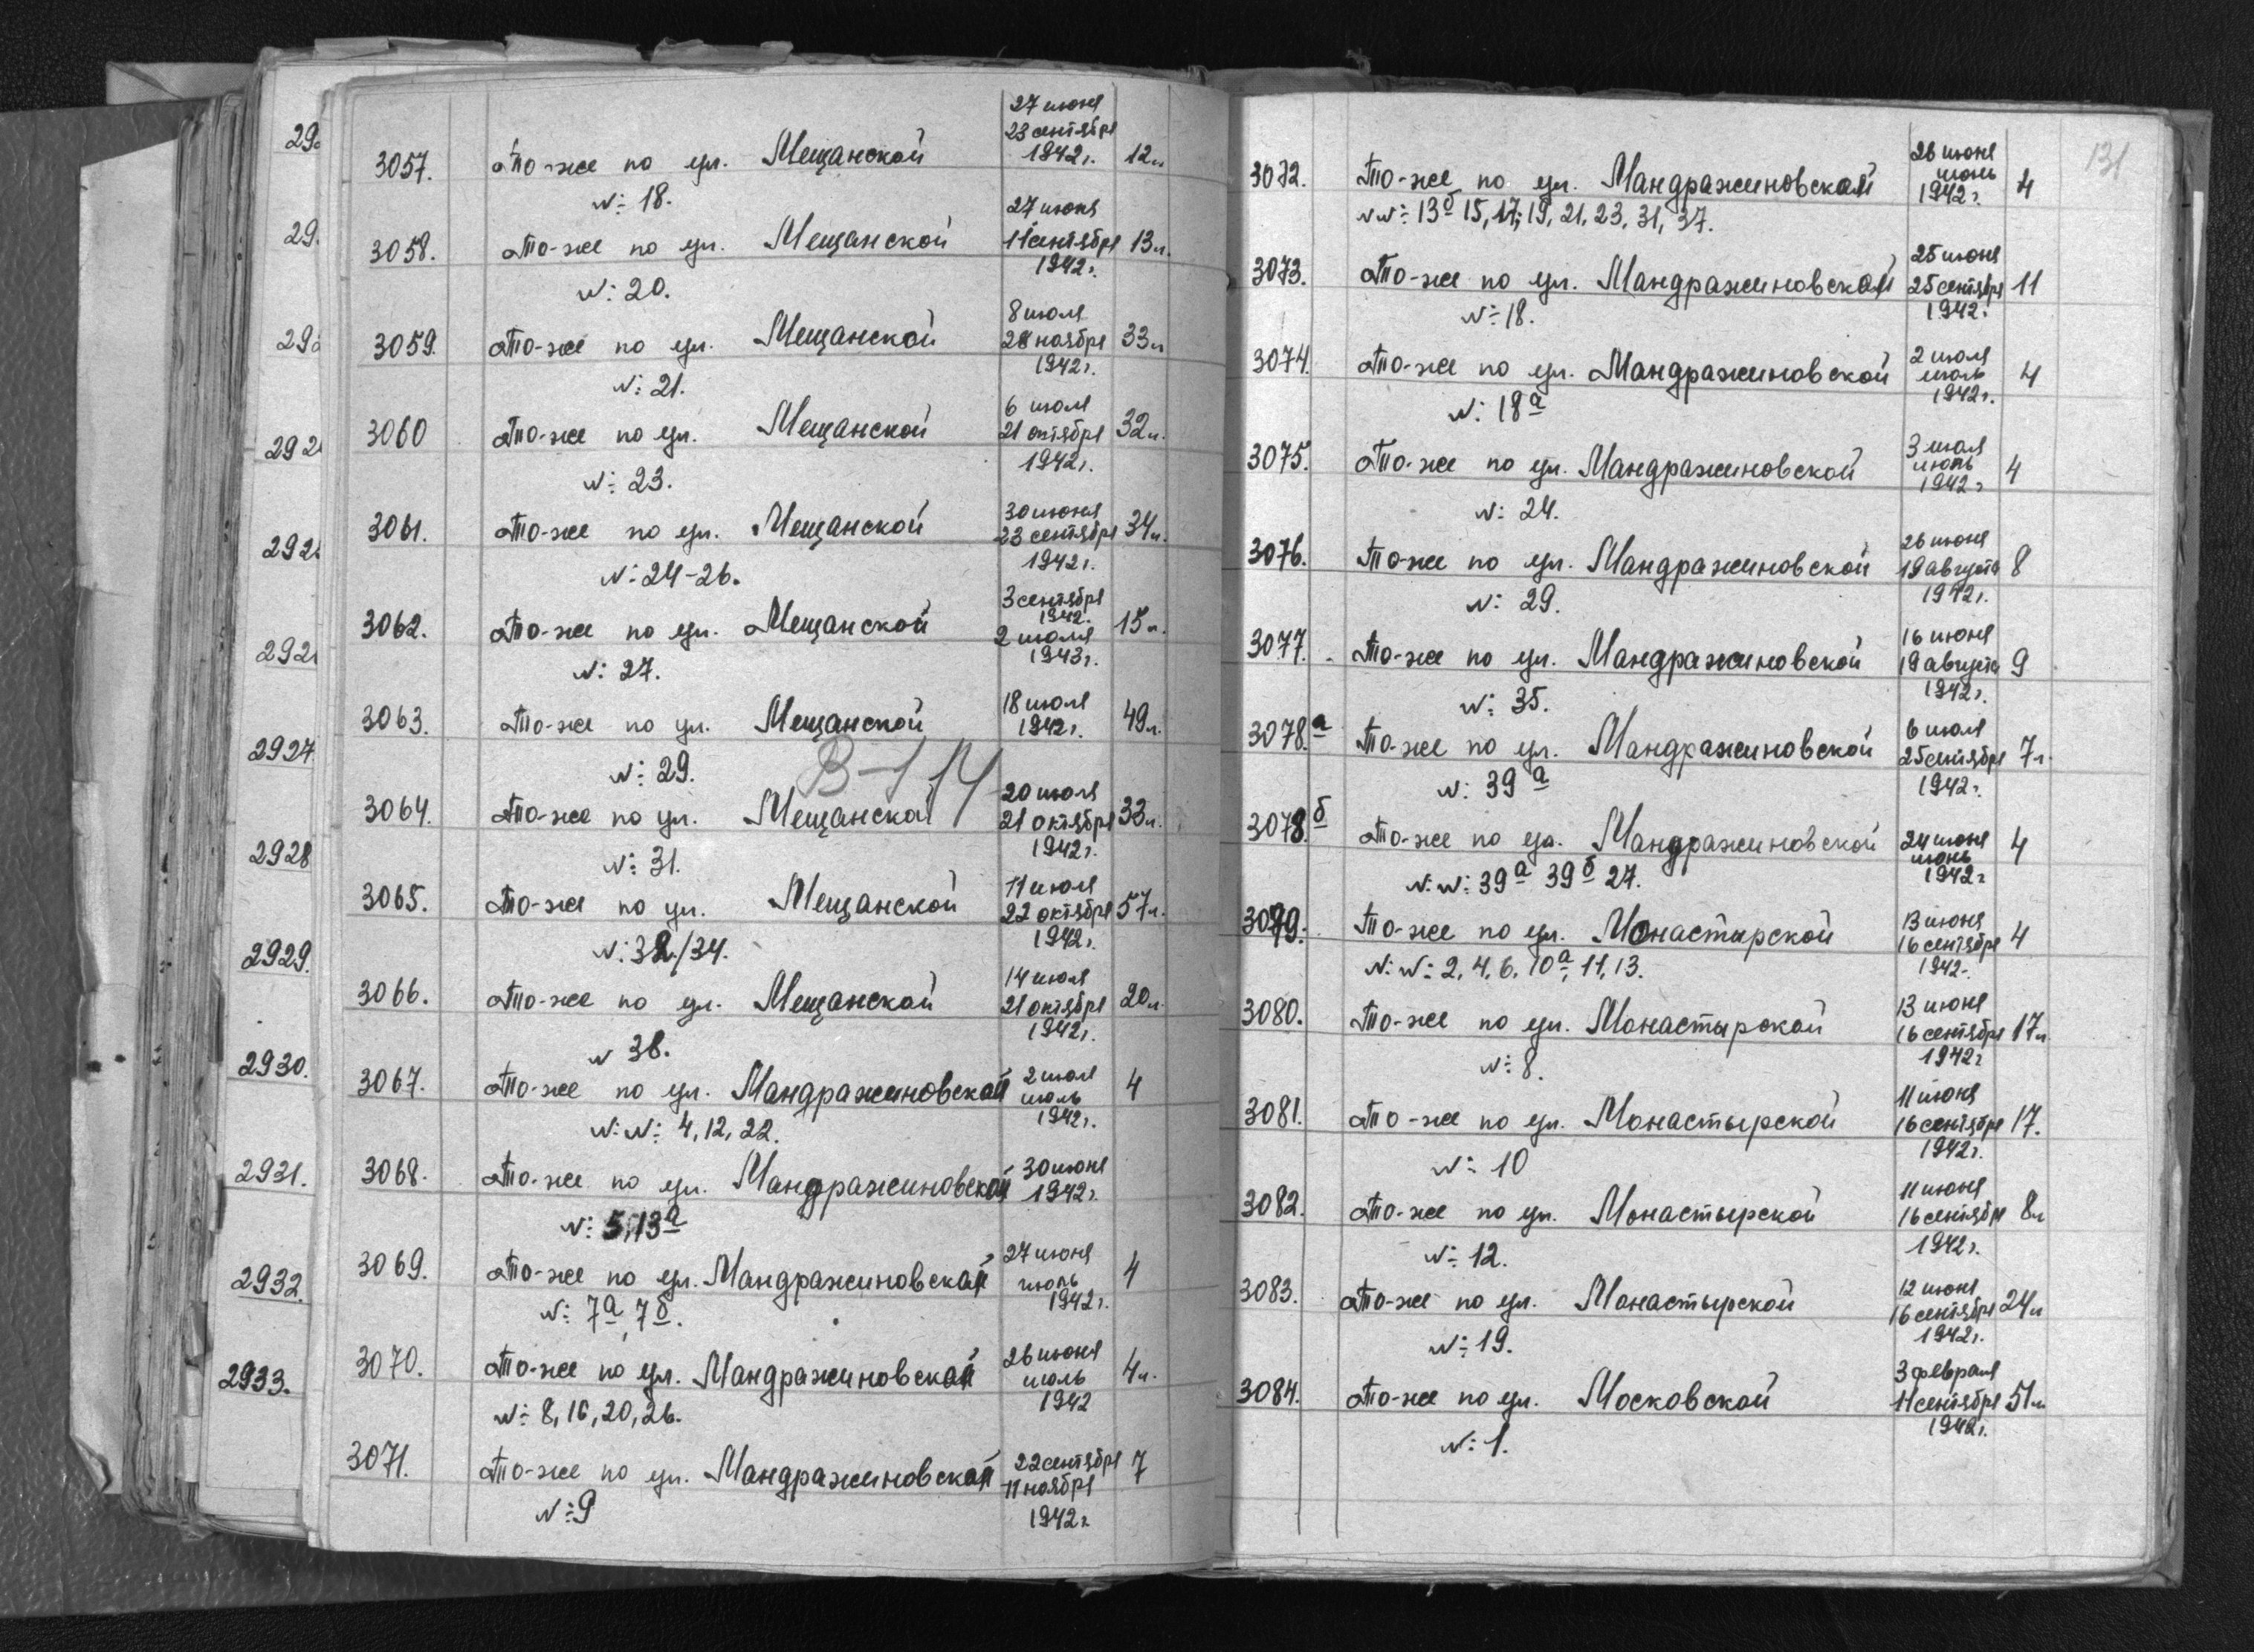 3057. То-же по ул. Мещанской 27 июня 23 сентября 1942 г. 12 л.
№ 18.
3058. То-же по ул. Мещанской 27 июня 11 сентября 1942 г. 13 л.
№ 20.
3059. То-же по ул. Мещанской 8 июля 28 ноября 1942 г. 33 л
№ 21.
3060 То-же по ул. Мещанской 6 июля 21 октября 1942 г. 32 л.
№ 23.
3061. То-же по ул. Мещанской 30 июня 23 сентября 1942 г. 34 л.
№ 24-26.
3062. То-же по ул. Мещанской 3 сентября 1942. 2 июля 1943 г. 15 л.
№ 27.
3063. То-же по ул. Мещанской 18 июля 1942 г. 49 л.
№ 29.
3064. То-же по ул. Мещанской 20 июля 21 октября 1942 г. 33 л.
№ 31.
3065. То-же по ул. Мещанской 11 июля 22 октября 1942 г. 57 л.
№ 32/34.
3066. То-же по ул. Мещанской 14 июля 21 октября 1942 г. 20 л.
№ 38.
3067. То-же по ул. Мандражиновской 2 июля июль 1942 г. 4
№№ 4, 12, 22.
3068. То-же по ул. Мандражиновской 30 июня 1942 г.
№ 5, 13а
3069. То-же по ул. Мандражиновской 27 июня июль 1942 г. 4
№ 7а, 7б.
3070. То-же по ул. Мандражиновской 26 июня июль 1942 4 л.
№ 8, 16, 20, 26.
3071. То-же по ул. Мандражиновской 22 сентября 11 ноября 1942 г. 7
№ 9
2927.
2928
2929.
2930.
2931.
2932.
2933.
131
3072. То-же по ул. Мандражиновской 26 июня июнь 1942 г. 4
№№ 13б 15, 17, 19, 21, 23, 31, 37.
3073. То-же по ул. Мандражиновской 25 июня 25 сентября 1942. 11
№ 18.
3074. То-же по ул. Мандражиновской 2 июля июль 1942 г. 4
№ 18а
3075. То-же по ул. Мандражиновской 3 июля июль 1942 г 4
№ 24.
3076. То-же по ул. Мандражиновской 26 июня 19 августа 1942 г. 8
№ 29.
3077. То-же по ул. Мандражиновской 16 июня 19 августа 1942 г. 9
№ 35.
3078.а То-же по ул. Мандражиновской 6 июля 25 сентября 1942 г. 7 л.
№ 39а
3078.б То-же по ул. Мандражиновской 24 июня июнь 1942 г 4
№№ 39а 39б 27.
3079. То-же по ул. Монастырской 13 июня 16 сентября 1942. 4
№№ 2, 4, 6, 10а, 11, 13.
3080. То-же по ул. Монастырской 13 июня 16 сентября 1942 г 17 л
№ 8.
3081. То-же по ул. Монастырской 11 июня 16 сентября 1942 г. 17.
№ 10
3082. То-же по ул. Монастырской 11 июня 16 сентября 1942 г. 8 л
№ 12.
3083. То-же по ул. Монастырской 12 июня 16 сентября 1942 г. 24 л
№ 19.
3084. То-же по ул. Московской 3 февраля 11 сентября 1942 г. 51 л
№ 1.